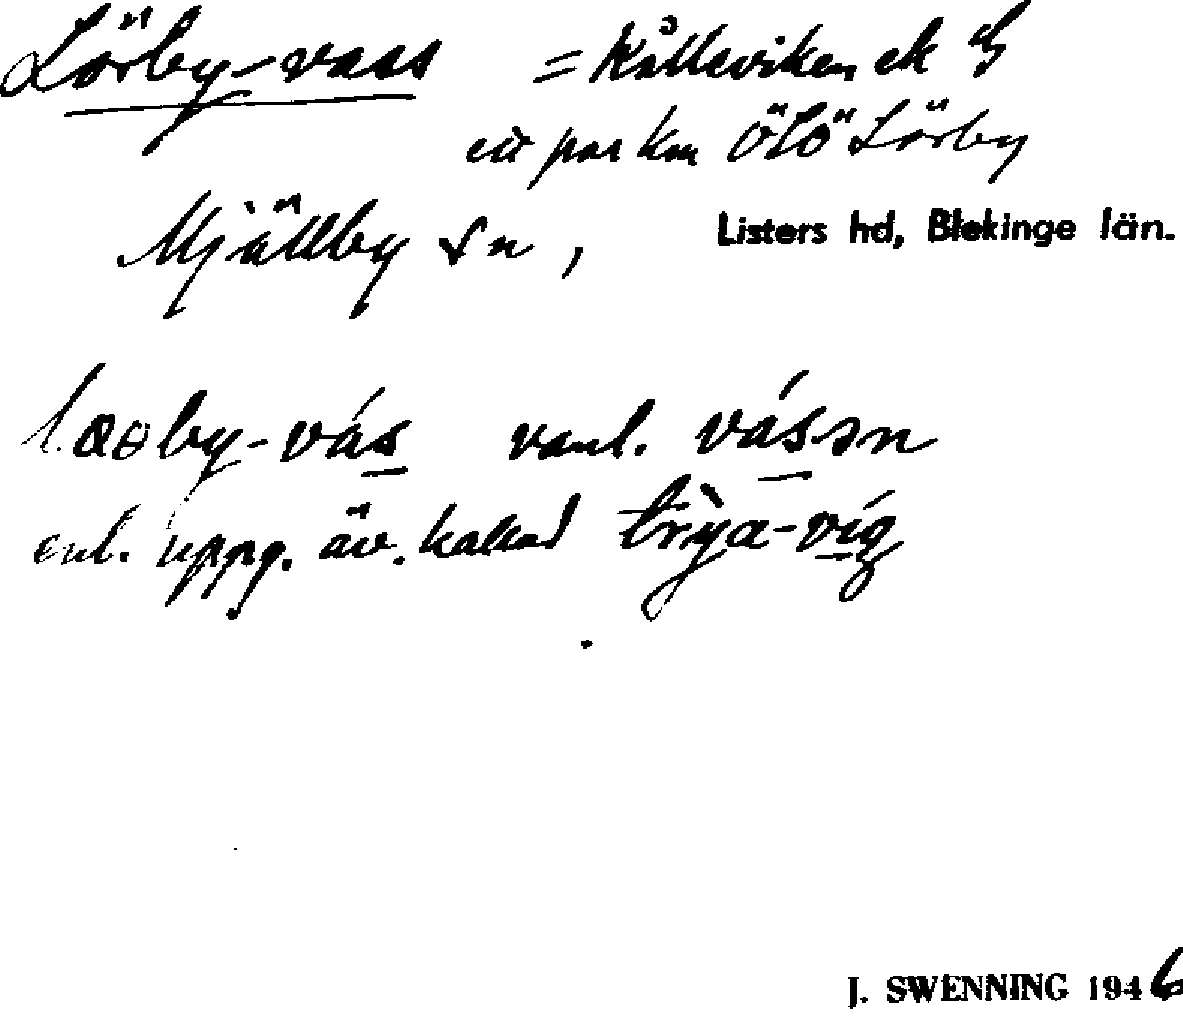 Lörby-vass = Kålleviken ek
ett par km ÖLÖ Lörby
Mjällby sn, Listers hd, Blekinge län.
by-vás vanl. vássn
enl. uppg. äv. kallad trỳa-víg
J. SWENNING 1946